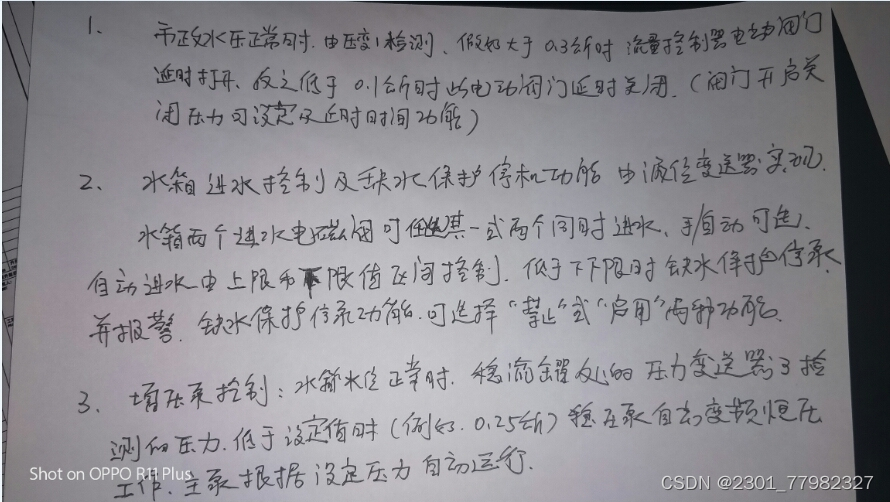 1. 市政水压正常时.由压变1检测.假如大于0.3公斤时流量控制器电动阀门
延时打开、反之低于0.1公斤时此电动阀门延时关闭.(阀门开启关
闭压力可设定及延时时间功能)
2、水箱进水控制及缺水保护停机功能由液位变送器实现.
水箱两个进水电磁阀可任选其一或两个同时进水、手/自动可选、
自动进水由上限和下限值区间控制.低于下下限时缺水保护停泵
并报警.缺水保护停泵功能.可选择“禁止”或“启用”两种功能.
3、增压泵控制:水箱水位正常时.稳流罐处的压力变送器3检
测的压力.低于设定值时(例如.0.25公斤)稳压泵自动变频恒压
工作.主泵根据设定压力自动运行.
Shot on OPPO R11 Plus
CSDN @2301_77982327